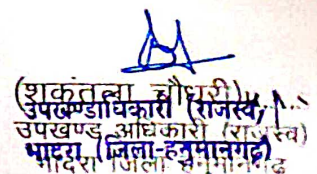 (शकुंतला चौधरी)
उपखण्डाधिकारी (राजस्व)
उपखण्ड अधिकारी (राजस्व)
भादरा (जिला-हनुमानगढ़)
भादरा जिला हनुमानगढ़